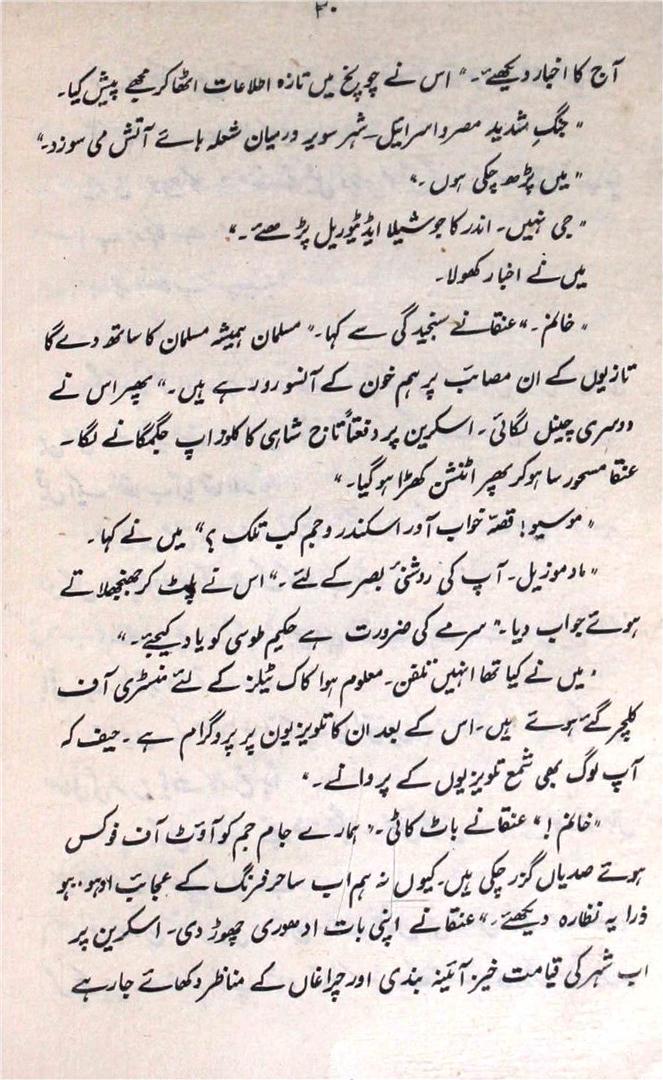 ۳۰
آج کا اخبار دیکھئے۔" اس نے چوپخ میں تازہ اطلاعات اٹھا کر مجھے پیش کیا۔
"جنگِ شدید مصر و اسرائیل۔ شہر سویز درمیان شعلہ ہائے آتش می سوزد۔"
"میں پڑھ چکی ہوں۔"
"جی نہیں۔ اندر کا جوشیلا ایڈیٹوریل پڑھئے۔"
میں نے اخبار کھولا۔
"خانم۔" عنقا نے سنجیدگی سے کہا۔ "مسلمان ہمیشہ مسلمان کا ساتھ دے گا
تازیوں کے ان مصائب پر ہم خون کے آنسو رو رہے ہیں۔" پھر اس نے
دوسری چینل لگائی۔ اسکرین پر دفعتاً تاج شاہی کا کلوز اپ جگمگانے لگا۔
عنقا مسحور سا ہو کر پھر اٹنشن کھڑا ہو گیا۔"
"موسیو! قصّہ خواب آور اسکندر و جم کب تلک؟" میں نے کہا۔
"مادموزیل۔ آپ کی روشنیٔ بصر کے لئے۔" اس نے پلٹ کر جھنجھلاتے
ہوئے جواب دیا۔ "سرمے کی ضرورت ہے حکیم طوسی کو یاد کیجئے۔"
"میں نے کیا تھا انہیں تلفن۔ معلوم ہوا کاک ٹیلز کے لئے منسٹری آف
کلچر گئے ہوئے ہیں۔ اس کے بعد ان کا تلویزیون پر پروگرام ہے۔ حیف کہ
آپ لوگ بھی شمع تلویزیوں کے پروانے۔"
"خانم!" عنقا نے بات کاٹی۔ "ہمارے جام جم کو آؤٹ آف فوکس
ہوئے صدیاں گزر چکی ہیں۔ کیوں نہ ہم اب ساحر فرنگ کے عجائب اوہو۔ ہو
ذرا یہ نظارہ دیکھئے۔" عنقا نے اپنی بات ادھوری چھوڑ دی۔ اسکرین پر
اب شہر کی قیامت خیز آئینہ بندی اور چراغاں کے مناظر دکھائے جا رہے